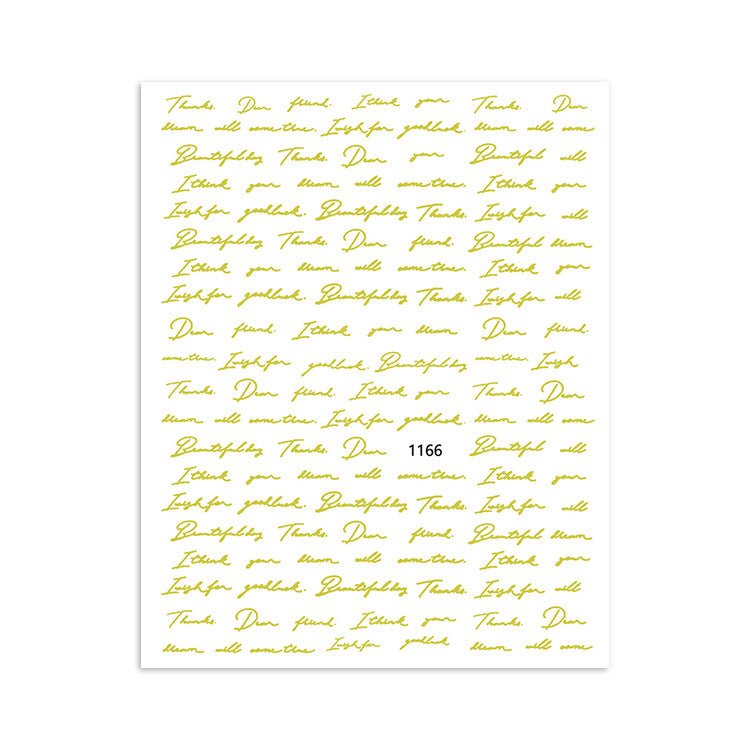 Thanks. Dear friend. I think your Thanks. Dear
dream will come true. I wish for goodluck. dream will come
Beautiful day Thanks. Dear your Beautiful will
I think your dream will come true. I think your
I wish for goodluck. Beautiful day Thanks. I wish for will
Beautiful day Thanks. Dear friend. Beautiful dream
I think your dream will come true. I think your
I wish for goodluck. Beautiful day Thanks. I wish for will
Dear friend. I think your dream Dear friend.
come true. I wish for goodluck. Beautiful day come true. I wish
Thanks. Dear friend. I think your Thanks. Dear
dream will come true. I wish for goodluck. dream will come
Beautiful day Thanks. Dear 1166 Beautiful will
I think your dream will come true. I think your
I wish for goodluck. Beautiful day Thanks. I wish for will
Beautiful day Thanks. Dear friend. Beautiful dream
I think your dream will come true. I think your
I wish for goodluck. Beautiful day Thanks. I wish for will
Thanks. Dear friend. I think your Thanks. Dear
dream will come true. I wish for goodluck dream will come